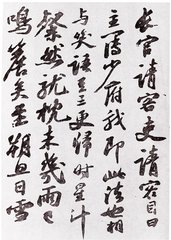 長官請客吏請客目曰
主簿少府我即此法也相
与笑語至三更歸時星斗
粲然就枕未幾雨已
鳴簷矣至朔旦日雪